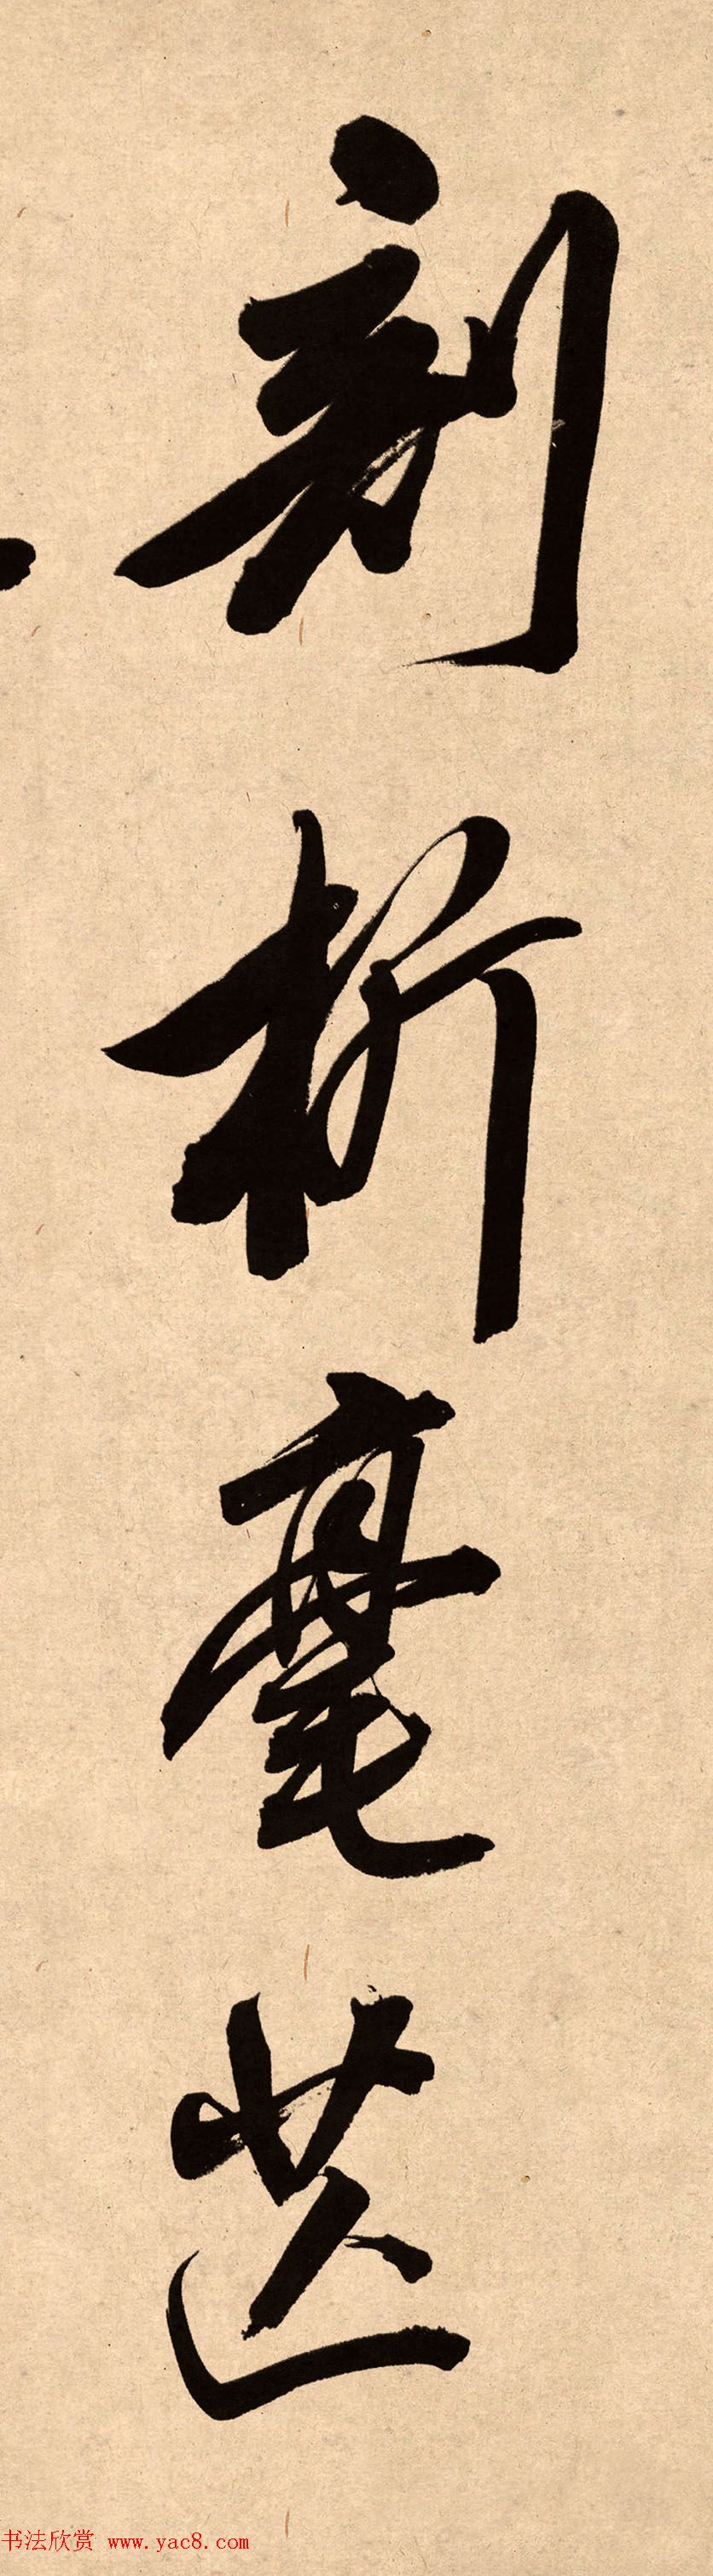 刻析毫芒
书法欣赏 www.yac8.com